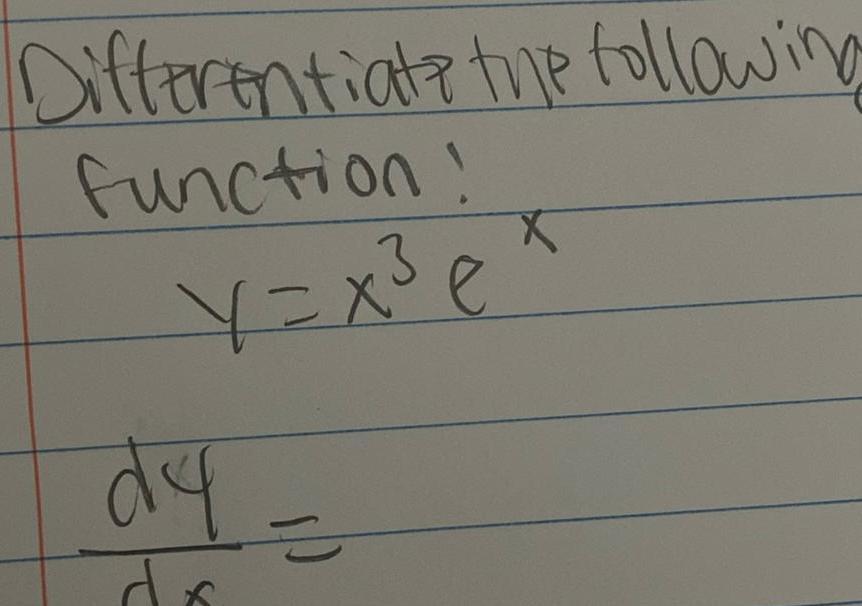 Differentiate the following
function:
y = x³ eˣ
dy
dx =